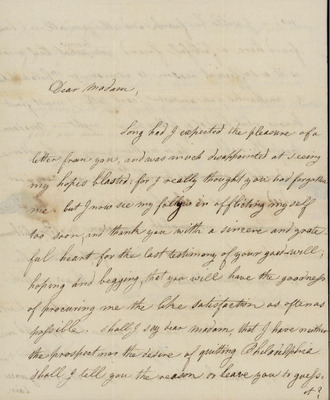 Dear Madam,
Long had I expected the pleasure of a
letter from you, and was much disappointed at seeing
my hopes blasted; for I really thought you had forgotten
me - but I now see my folly in afflicting myself
too soon, and thank you with a sincere and grate
ful heart for the last testimony of your good-will,
hoping and begging, that you will have the goodness
of procuring me the like satisfaction as often as
possible. shall I say dear madam, that I have neither
the prospect nor the desire of quitting Philadelphia
shall I tell you the reason or leave you to guess
it?